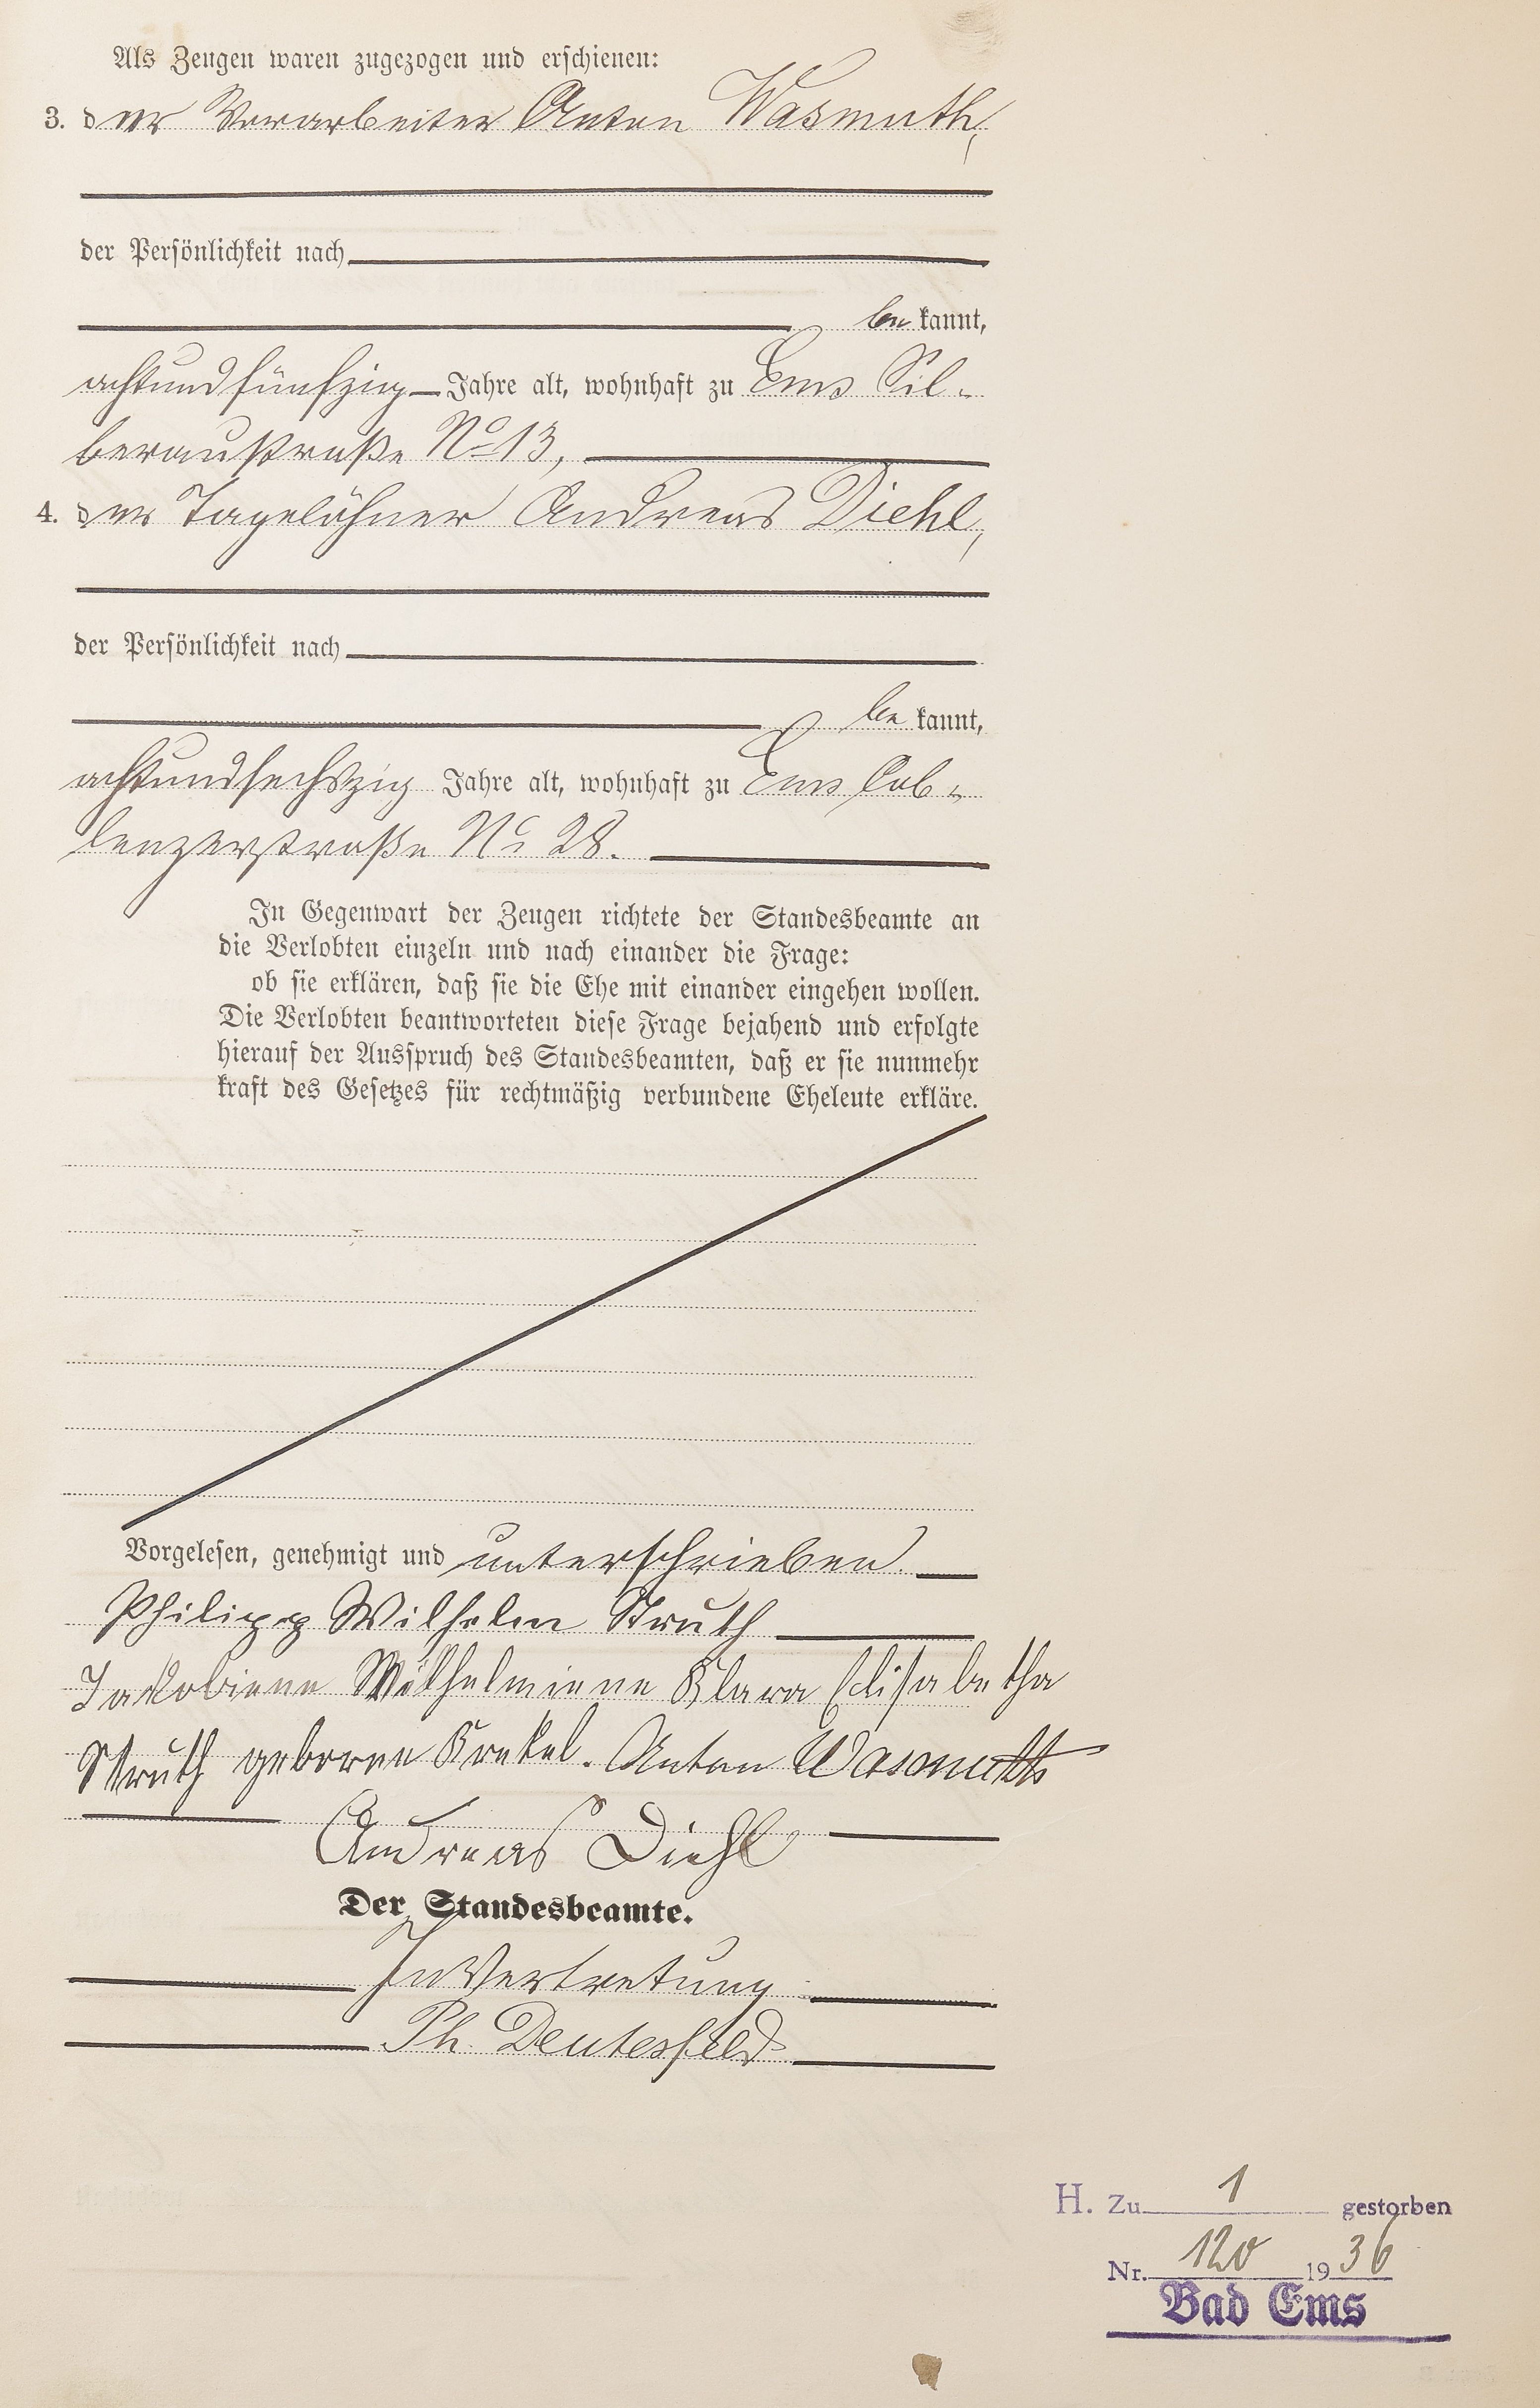 Als Zeugen waren zugezogen und erschienen:
3. der Vorarbeiter Anton Wasmuth,
der Persönlichkeit nach
be kannt,
achtundfünfzig Jahre alt, wohnhaft zu Ems Sil-
beraustraße No 13,
4. der Tagelöhner Andreas Diehl,
der Persönlichkeit nach
be kannt,
achtundsechszig Jahre alt, wohnhaft zu Ems Cob-
lenzerstraße No 28.
In Gegenwart der Zeugen richtete der Standesbeamte an
die Verlobten einzeln und nach einander die Frage:
ob sie erklären, daß sie die Ehe mit einander eingehen wollen.
Die Verlobten beantworteten diese Frage bejahend und erfolgte
hierauf der Ausspruch des Standesbeamten, daß er sie nunmehr
kraft des Gesetzes für rechtmäßig verbundene Eheleute erkläre.
Vorgelesen, genehmigt und unterschrieben.
Philipp Wilhelm Struth
Jakobiene Wilhelmiene Klara Elisabetha
Struth geborene Krekel. Anton Wasmuth
Andreas Diehl
Der Standesbeamte.
In Vertretung
Ph. Deutesfeld
H. Zu 1 gestorben
Nr. 120 1936
Bad Ems